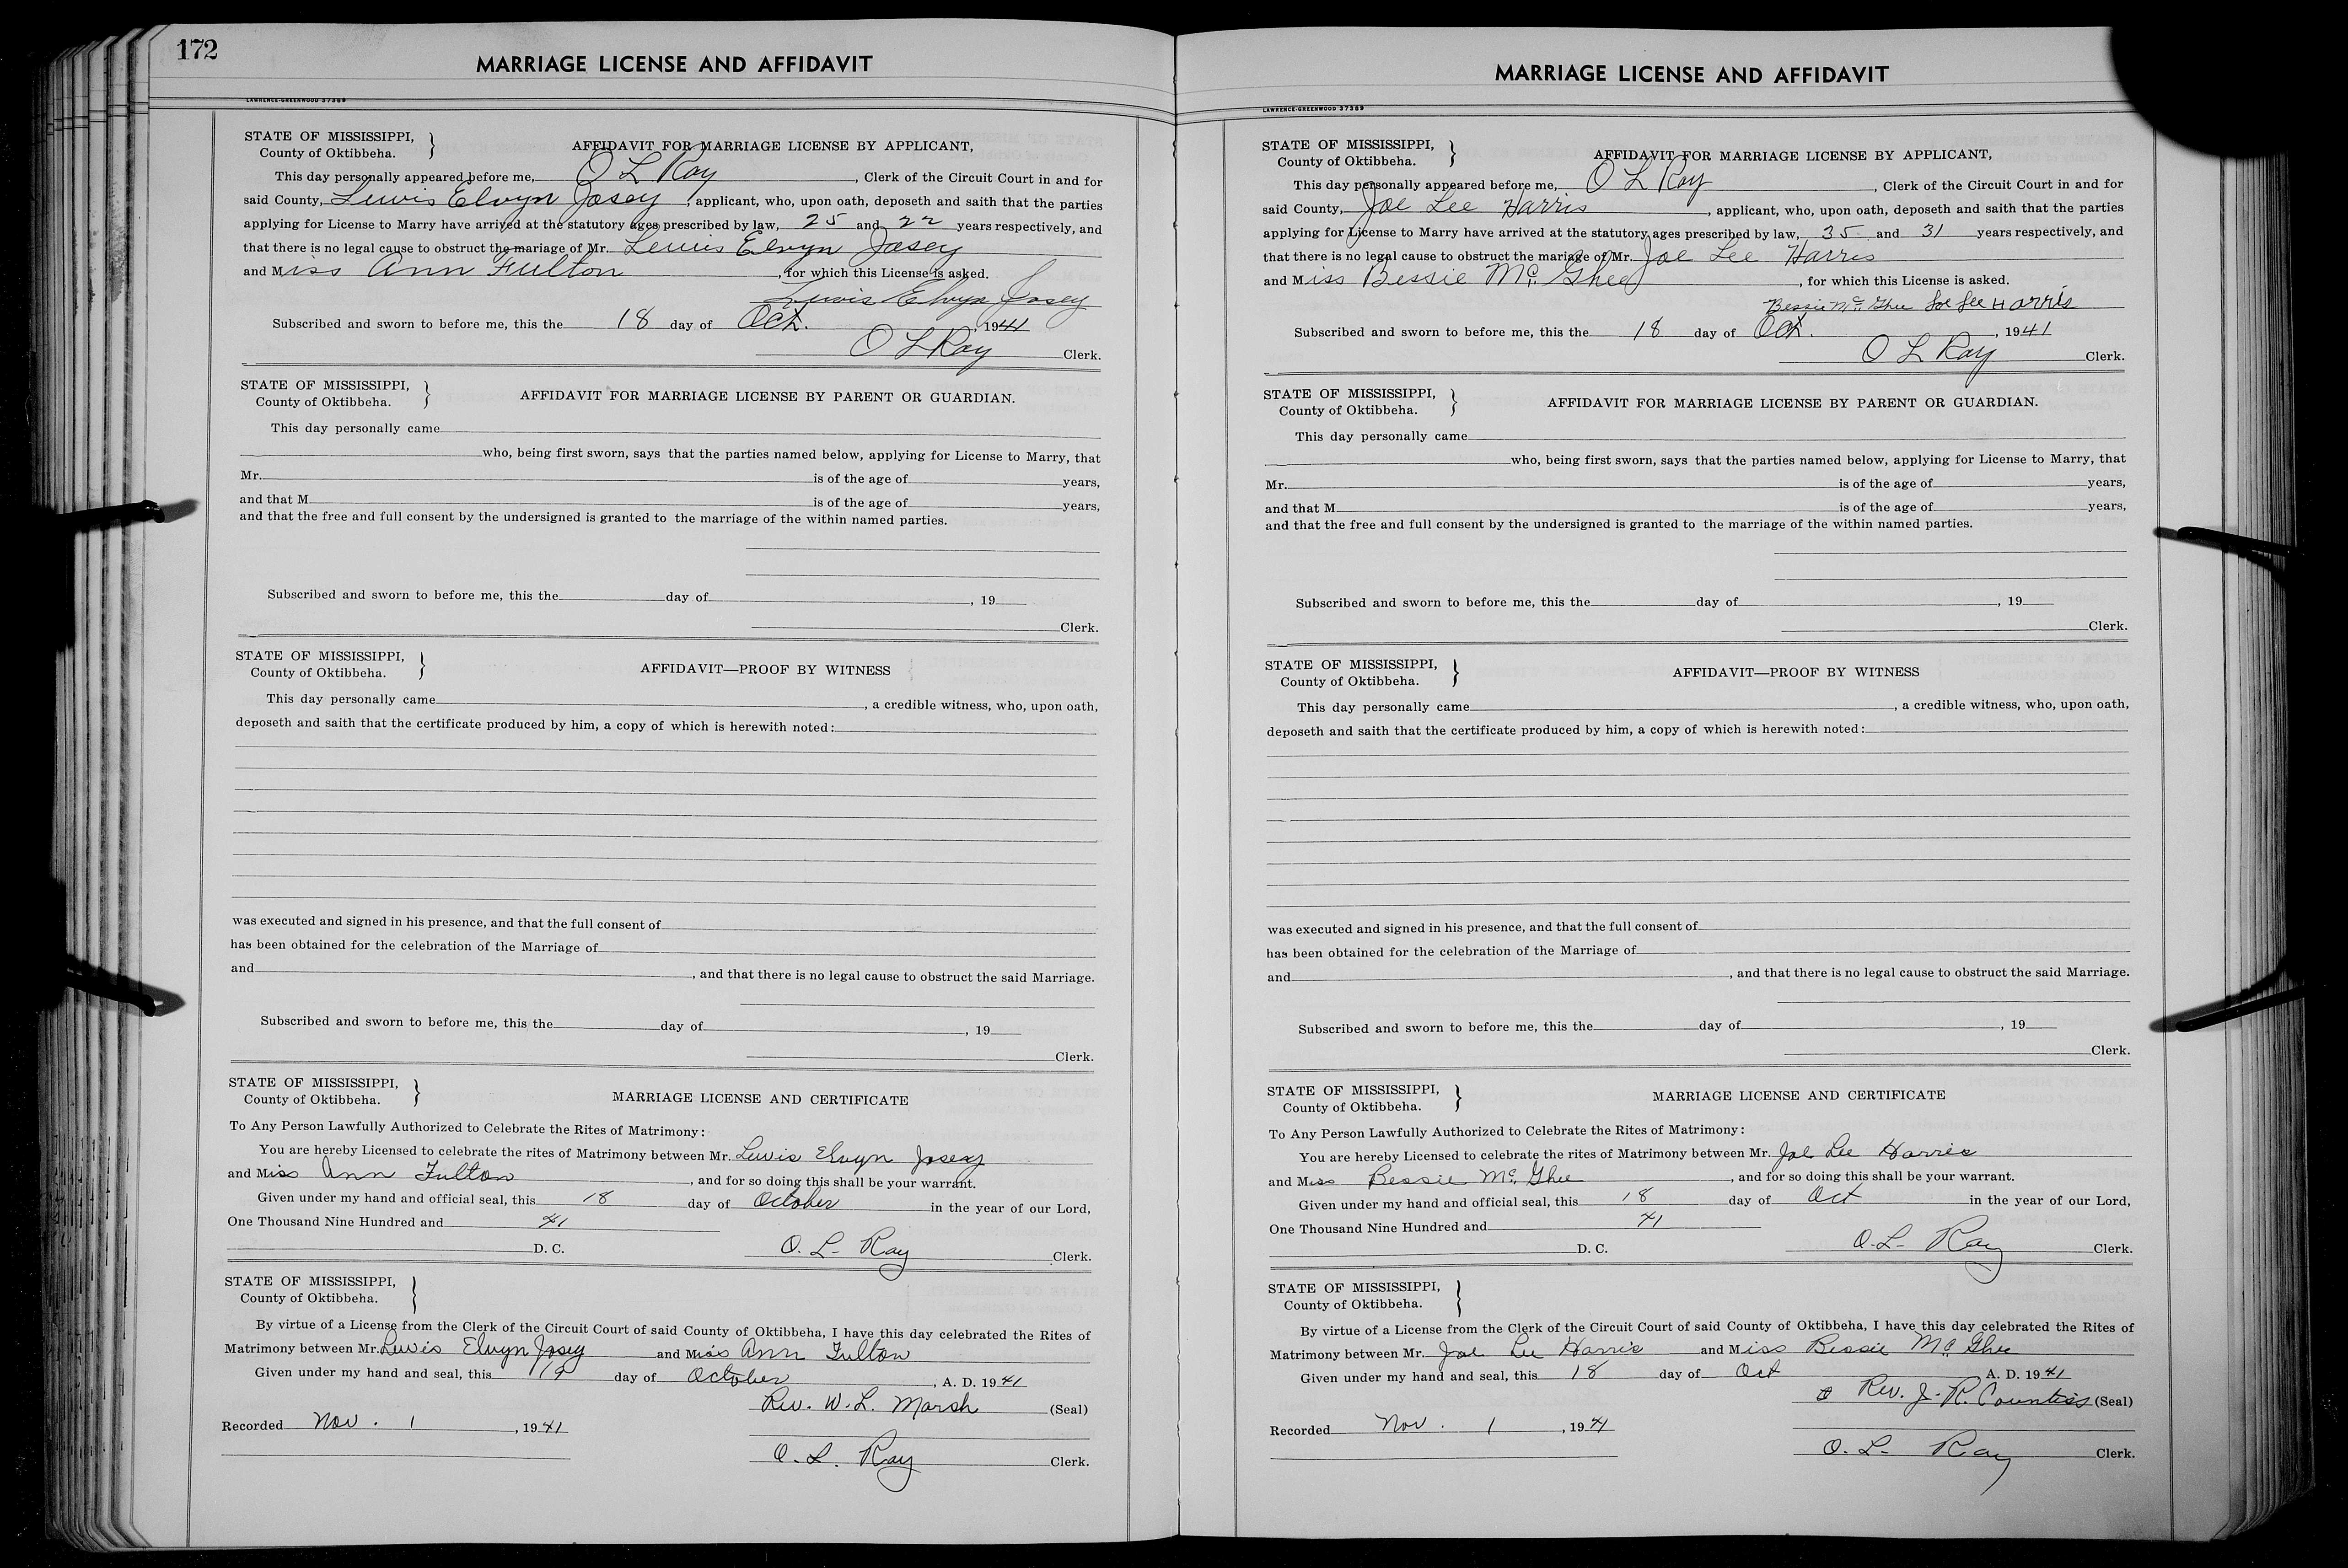 172
MARRIAGE LICENSE AND AFFIDAVIT
LAWRENCE-GREENWOOD 37389
STATE OF MISSISSIPPI,
County of Oktibbeha.
AFFIDAVIT FOR MARRIAGE LICENSE BY APPLICANT,
This day personally appeared before me, O L Ray, Clerk of the Circuit Court in and for
said County, Lewis Elvyn Josey, applicant, who, upon oath, deposeth and saith that the parties
applying for License to Marry have arrived at the statutory ages prescribed by law, 25 and 22 years respectively, and
that there is no legal cause to obstruct the mariage of Mr. Lewis Elvyn Josey
and Miss Ann Fulton, for which this License is asked.
Lewis Elvyn Josey
Subscribed and sworn to before me, this the 18 day of Oct., 1941
O L Ray Clerk.
STATE OF MISSISSIPPI,
County of Oktibbeha.
AFFIDAVIT FOR MARRIAGE LICENSE BY PARENT OR GUARDIAN.
This day personally came
who, being first sworn, says that the parties named below, applying for License to Marry, that
Mr. is of the age of years,
and that M is of the age of years,
and that the free and full consent by the undersigned is granted to the marriage of the within named parties.
Subscribed and sworn to before me, this the day of , 19
Clerk.
STATE OF MISSISSIPPI,
County of Oktibbeha.
AFFIDAVIT—PROOF BY WITNESS
This day personally came , a credible witness, who, upon oath,
deposeth and saith that the certificate produced by him, a copy of which is herewith noted:
was executed and signed in his presence, and that the full consent of
has been obtained for the celebration of the Marriage of
and , and that there is no legal cause to obstruct the said Marriage.
Subscribed and sworn to before me, this the day of , 19
Clerk.
STATE OF MISSISSIPPI,
County of Oktibbeha.
MARRIAGE LICENSE AND CERTIFICATE
To Any Person Lawfully Authorized to Celebrate the Rites of Matrimony:
You are hereby Licensed to celebrate the rites of Matrimony between Mr. Lewis Elvyn Josey
and Miss Ann Fulton, and for so doing this shall be your warrant.
Given under my hand and official seal, this 18 day of October in the year of our Lord,
One Thousand Nine Hundred and 41
D. C. O. L. Ray Clerk.
STATE OF MISSISSIPPI,
County of Oktibbeha.
By virtue of a License from the Clerk of the Circuit Court of said County of Oktibbeha, I have this day celebrated the Rites of
Matrimony between Mr. Lewis Elvyn Josey and Miss Ann Fulton
Given under my hand and seal, this 19 day of October, A. D. 1941
Rev. W. L. Marsh (Seal)
Recorded Nov. 1, 1941
O. L. Ray Clerk.
MARRIAGE LICENSE AND AFFIDAVIT
LAWRENCE-GREENWOOD 37389
STATE OF MISSISSIPPI,
County of Oktibbeha.
AFFIDAVIT FOR MARRIAGE LICENSE BY APPLICANT,
This day personally appeared before me, O L Ray, Clerk of the Circuit Court in and for
said County, Joe Lee Harris, applicant, who, upon oath, deposeth and saith that the parties
applying for License to Marry have arrived at the statutory ages prescribed by law, 35 and 31 years respectively, and
that there is no legal cause to obstruct the mariage of Mr. Joe Lee Harris
and Miss Bessie Mc Ghee, for which this License is asked.
Bessie Mc Ghee Joe Lee Harris
Subscribed and sworn to before me, this the 18 day of Oct., 1941
O L Ray Clerk.
STATE OF MISSISSIPPI,
County of Oktibbeha.
AFFIDAVIT FOR MARRIAGE LICENSE BY PARENT OR GUARDIAN.
This day personally came
who, being first sworn, says that the parties named below, applying for License to Marry, that
Mr. is of the age of years,
and that M is of the age of years,
and that the free and full consent by the undersigned is granted to the marriage of the within named parties.
Subscribed and sworn to before me, this the day of , 19
Clerk.
STATE OF MISSISSIPPI,
County of Oktibbeha.
AFFIDAVIT—PROOF BY WITNESS
This day personally came , a credible witness, who, upon oath,
deposeth and saith that the certificate produced by him, a copy of which is herewith noted:
was executed and signed in his presence, and that the full consent of
has been obtained for the celebration of the Marriage of
and , and that there is no legal cause to obstruct the said Marriage.
Subscribed and sworn to before me, this the day of , 19
Clerk.
STATE OF MISSISSIPPI,
County of Oktibbeha.
MARRIAGE LICENSE AND CERTIFICATE
To Any Person Lawfully Authorized to Celebrate the Rites of Matrimony:
You are hereby Licensed to celebrate the rites of Matrimony between Mr. Joe Lee Harris
and Miss Bessie Mc Ghee, and for so doing this shall be your warrant.
Given under my hand and official seal, this 18 day of Oct in the year of our Lord,
One Thousand Nine Hundred and 41
D. C. O. L. Ray Clerk.
STATE OF MISSISSIPPI,
County of Oktibbeha.
By virtue of a License from the Clerk of the Circuit Court of said County of Oktibbeha, I have this day celebrated the Rites of
Matrimony between Mr. Joe Lee Harris and Miss Bessie Mc Ghee
Given under my hand and seal, this 18 day of Oct A. D. 1941
Rev. J. R. Countiss (Seal)
Recorded Nov. 1, 1941
O. L. Ray Clerk.